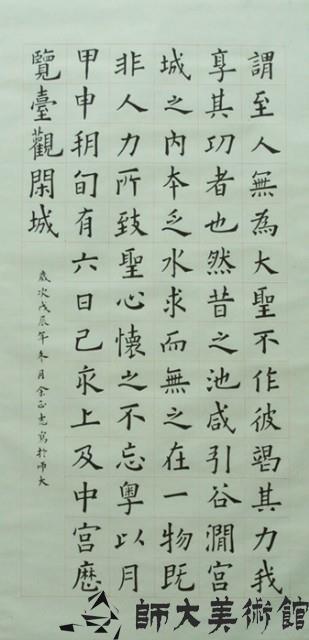 謂至人無為大聖不作彼竭其力我
享其功者也然昔之池咸引谷澗宮
城之內本乏水求而無之在一物既
非人力所致聖心懷之不忘粵以月
甲申朔旬有六日己亥上及中宮歷
覽臺觀閑城
歲次戊辰年冬月余正忠寫於師大
師大美術館